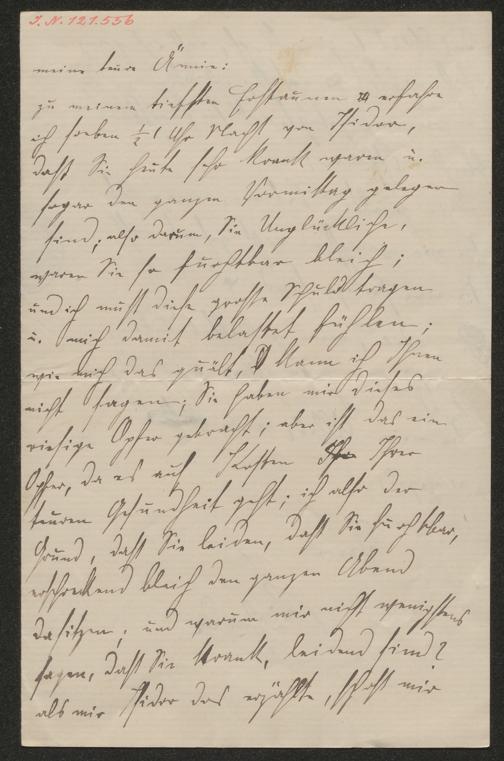 J. N. 121.556
meine teure Ännie:
zu meinem tiefsten Erstaunen erfahre
ich soeben ½ 1 Uhr Nacht von Isidor,
daß Sie heute sehr krank waren u.
sogar den ganzen Vormittag gelegen
sind; also darum, Sie Unglückliche,
waren Sie so furchtbar bleich;
und ich muß diese grosse Schuld tragen
u. mich damit belastet fühlen;
wie mich das quält, kann ich Ihnen
nicht sagen; Sie haben mir dieses
riesige Opfer gebracht; aber ist das ein
Opfer, da es auf Kosten Ihrer
teuren Gesundheit geht; ich also der
Grund, daß Sie leiden, daß Sie furchtbar,
erschreckend bleich den ganzen Abend
dasitzen, und warum mir nicht wenigstens
sagen, daß Sie krank, leidend sind?
als mir Isidor das erzählte, schoß mir